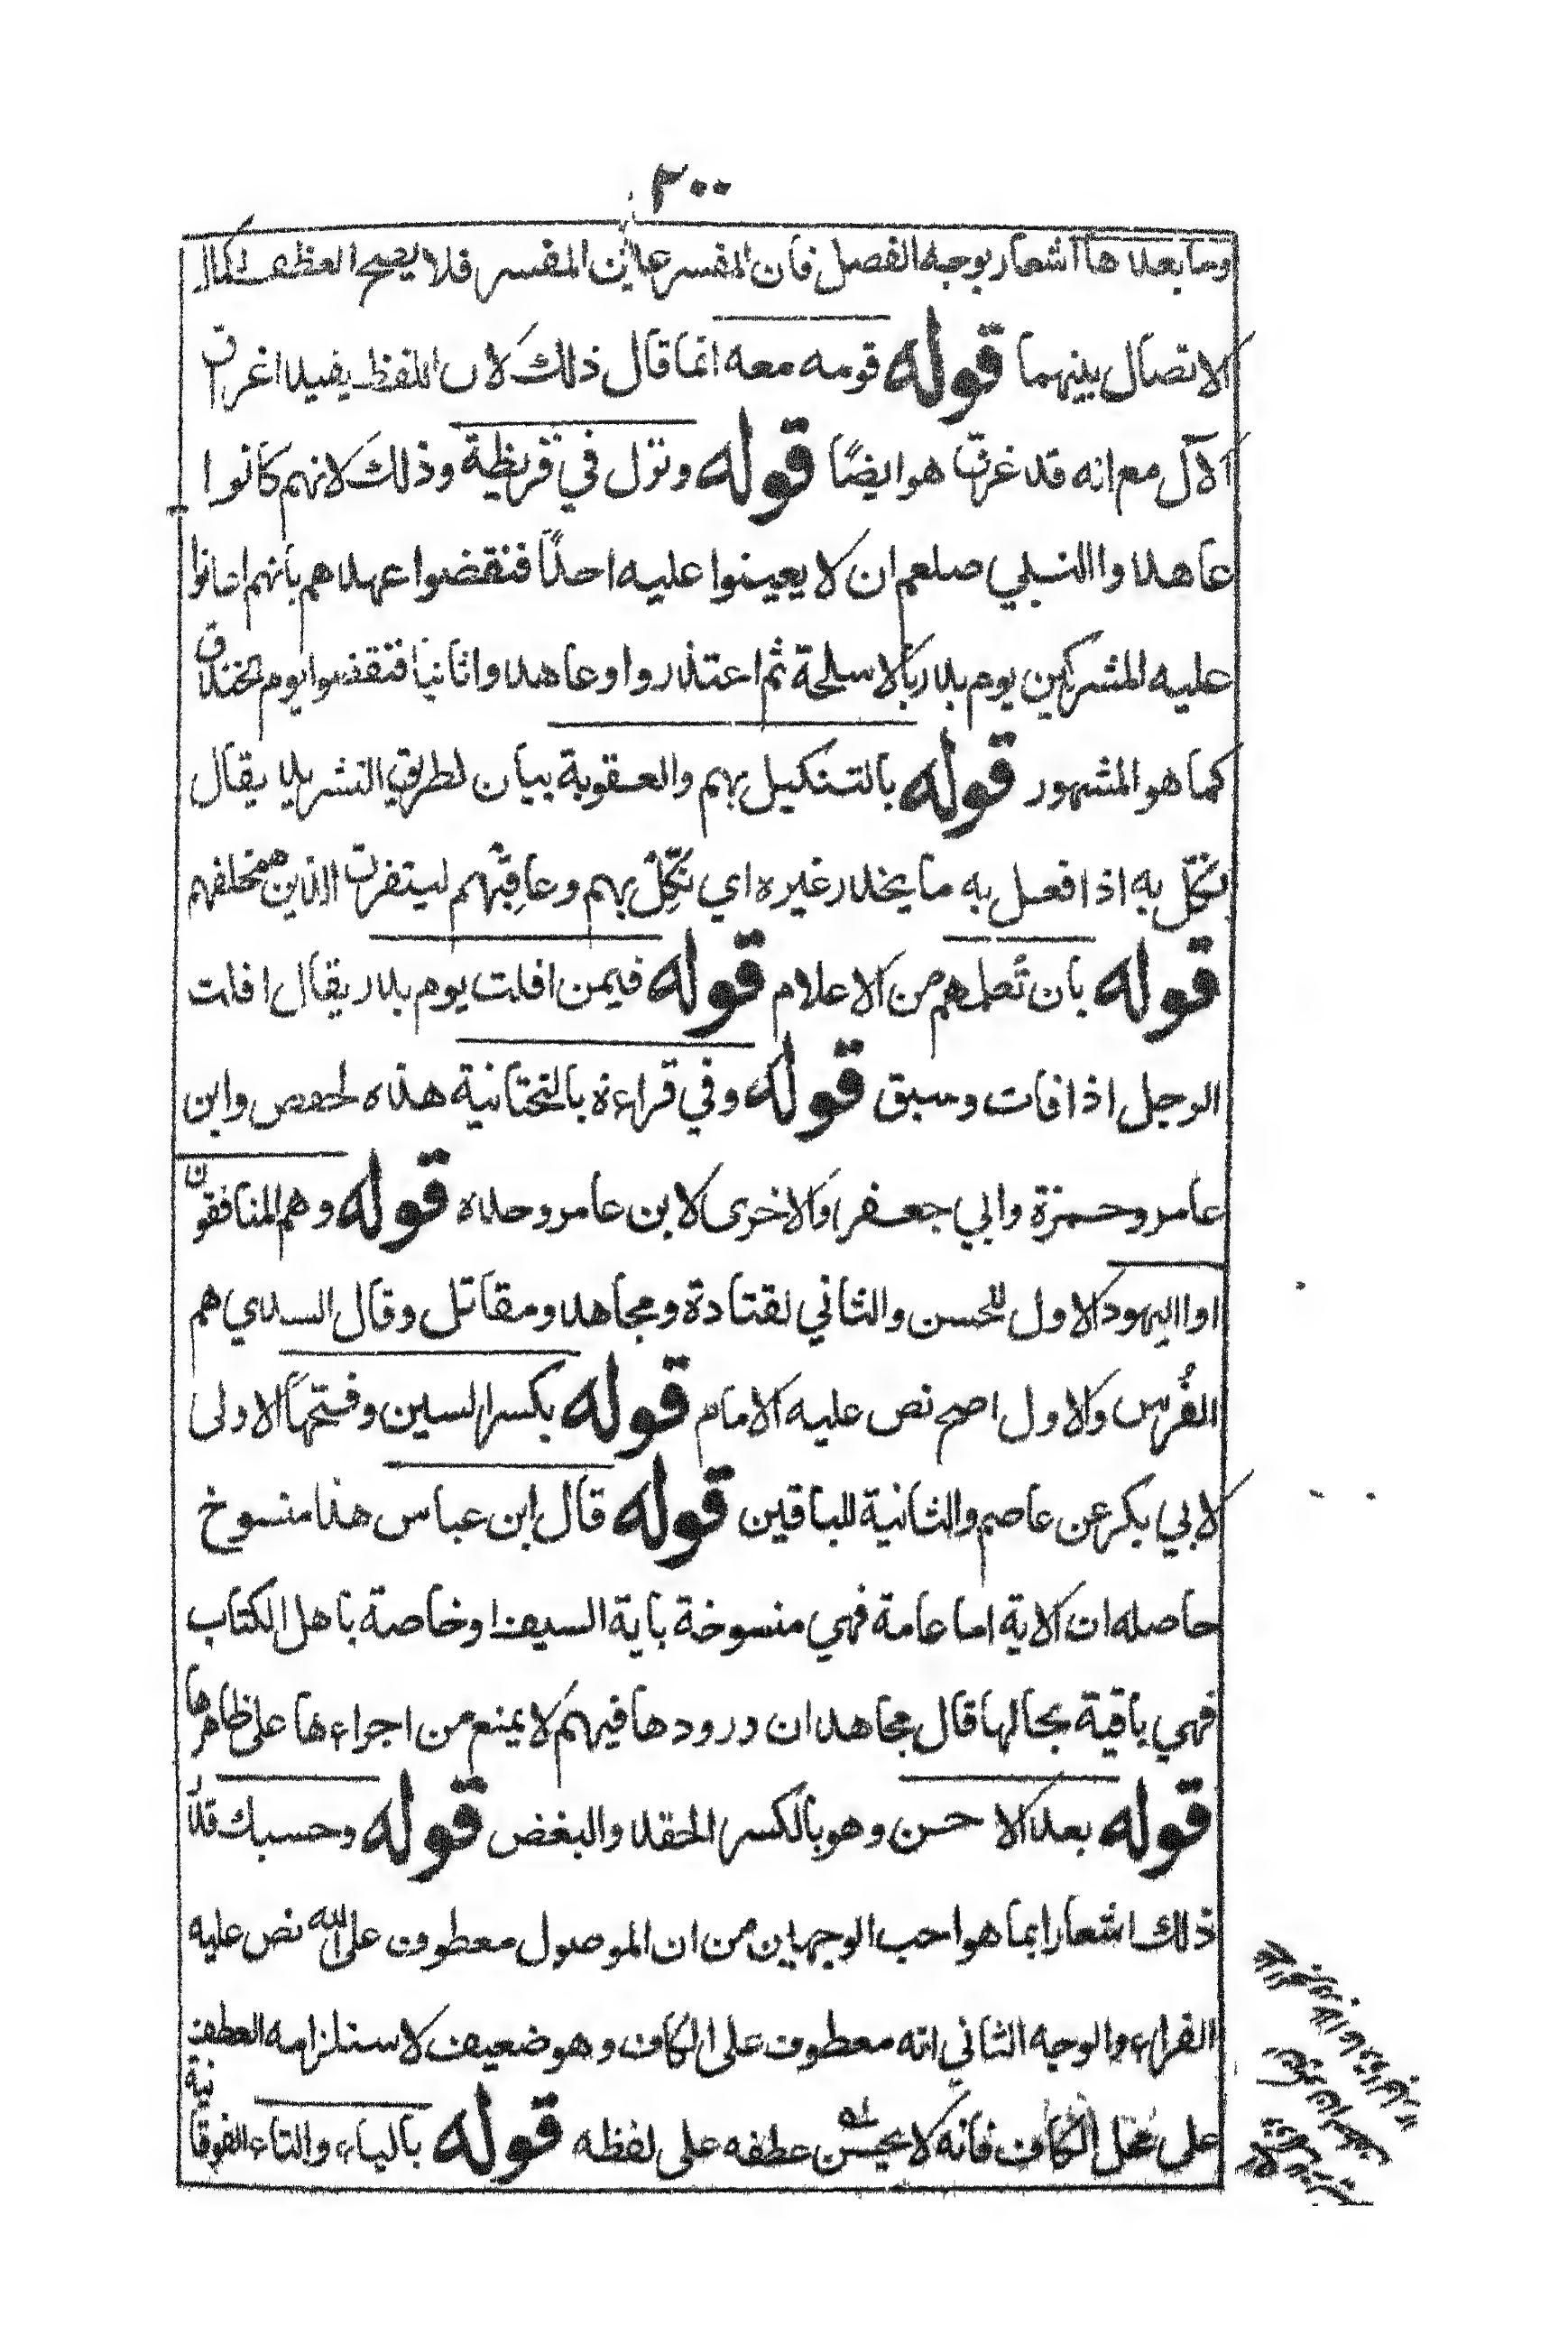 ٣٠٠
وما بعدها اشعار بوجه الفصل فان المفسر عاين المفسر فلا يصح العطف لكمال
الاتصال بينهما قوله قومه معه انما قال ذلك لان اللفظ يفيد اغراق
الآل مع انه قد غرق هو ايضًا قوله ونزل في قريظة وذلك لانهم كانوا
عاهدوا النبي صلعم ان لا يعينوا عليه احدًا فنقضوا عهدهم بانهم اعانوا
عليه المشركين يوم بدر بالاسلحة ثم اعتذروا وعاهدوا ثانيا فنقضوا يوم الخندق
كما هو المشهور قوله بالتنكيل بهم والعقوبة بيان لطريق التشريد يقال
نكّل به اذا فعل به ما يحذر غيره اي نكِّلْ بهم وعاقِبْهم ليتفرق الذين خلفهم
قوله بان تُعلمهم من الاعلام قوله فيمن افلت يوم بدر يقال افلت
الرجل اذا فات وسبق قوله وفي قراءة بالتحتانية هذه لحفص وابن
عامر وحمزة وابي جعفر والاخرى لابن عامر وحده قوله وهم المنافقون
او اليهود الاول للحسن والثاني لقتادة ومجاهد ومقاتل وقال السدي هم
الفُرس والاول اصح نص عليه الامام قوله بكسر السين وفتحها الاولى
لابي بكر عن عاصم والثانية للباقين قوله قال ابن عباس هذا منسوخ
حاصله ان الاية اما عامة فهي منسوخة باية السيف او خاصة باهل الكتاب
فهي باقية بحالها قال مجاهد ان ورودها فيهم لا يمنع من اجراءها على ظاهرها
قوله بعد الاحن وهو بالكسر الحقد والبغض قوله وحسبك قدّر
ذلك اشعارا بما هو احب الوجهين من ان الموصول معطوف على الله نص عليه
الفراء والوجه الثاني انه معطوف على الكاف وهو ضعيف لاستلزامه العطف
على محل الكاف فانه لا يحسن عطفه على لفظه قوله بالياء والتاء الفوقانية